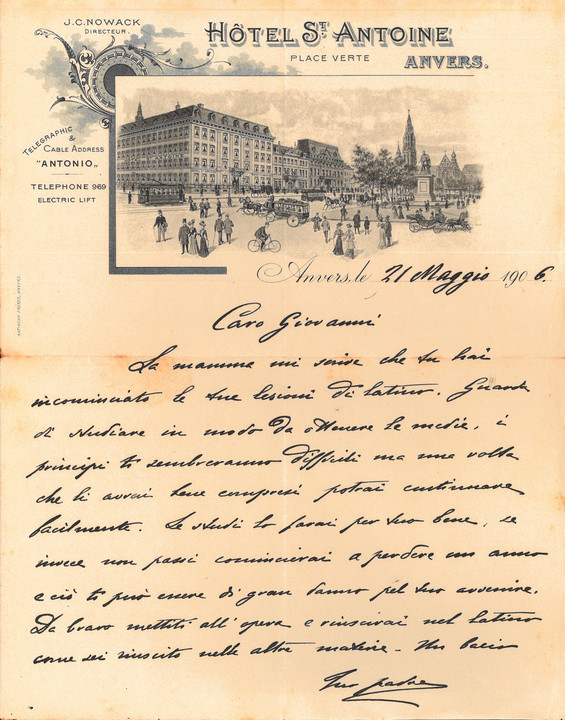 J.C. NOWACK
DIRECTEUR.
HÔTEL ST ANTOINE
PLACE VERTE
ANVERS.
TELEGRAPHIC
&
CABLE ADDRESS
"ANTONIO"
TELEPHONE 969
ELECTRIC LIFT
Anvers, le 21 Maggio 1906.
Caro Giovanni
La mamma mi scrive che tu hai
incominciato le tue lesioni di Latino. Guarda
di studiare in modo da ottenere le medie, i
principi ti sembreranno difficili ma una volta
che li avrai bene compresi potrai continuare
facilmente. Se studi lo farai per tuo bene, se
invece non passi comincierai a perdere un anno
e ciò ti può essere di gran danno pel tuo avvenire.
Da bravo mettiti all'opera e riuscirai nel Latino
come sei riuscito nelle altre materie. Un bacio
Tuo padre